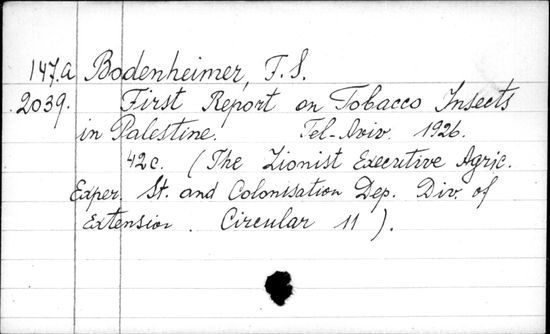 147.a Bodenheimer, F. S.
2039. First Report on Tobacco Insects
in Palestine. Tel-Aviv. 1926.
42c. (The Zionist Executive Agric.
Exper. St. and Colonisation Dep. Div. of
Extension. Circular 11).